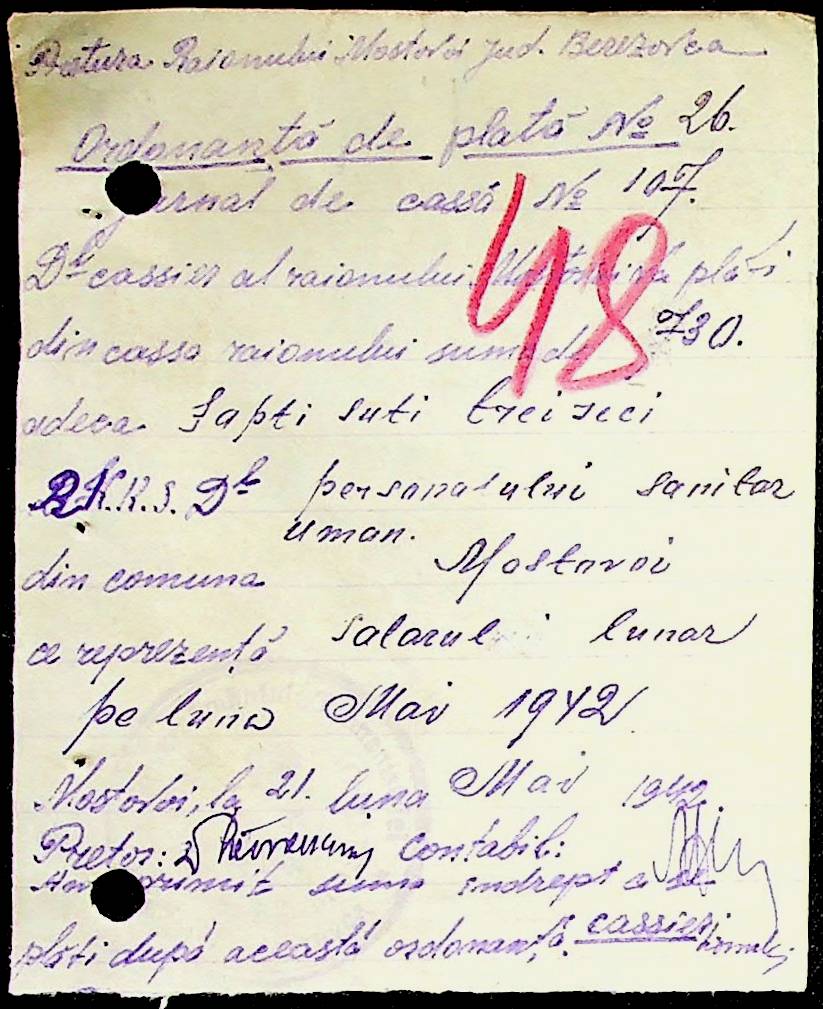 Pretura Raionului Mostovoi Jud. Berezovca
Ordonanță de plată № 26.
Jurnal de cassă № 107.
Dl cassier al raionului Mostovoi va plăti
din cassa raionului suma de 730.
adeca Șapti suti treizeci
R.K.K.S. Dl personalului sanitar
uman.
din comuna Mostovoi
ce reprezentă Salarul lunar
pe luna Mai 1942
Mostovoi, la 21. luna Mai 1942.
Pretor: Contabil:
Am primit suma indrept a se
plăti după această ordonanță. cassier
48